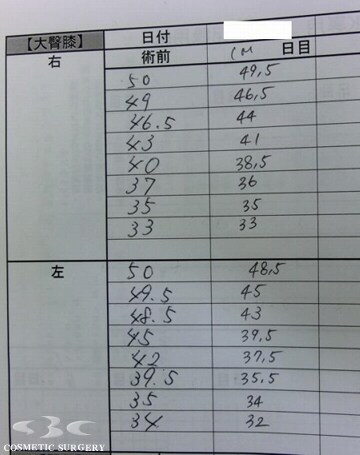 【大臀膝】 日付
右 術前 1M 日目
50 49,5
49 46,5
46.5 44
43 41
40 38,5
37 36
35 35
33 33
左 50 48,5
49.5 45
48.5 43
45 39,5
42 37,5
39.5 35.5
35 34
34 32
COSMETIC SURGERY